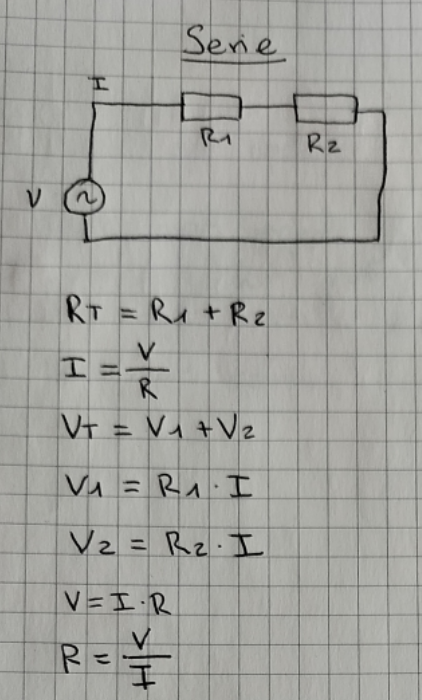 Serie
I
R1
R2
V
RT = R1 + R2
I = V/R
VT = V1 + V2
V1 = R1 · I
V2 = R2 · I
V = I · R
R = V/I